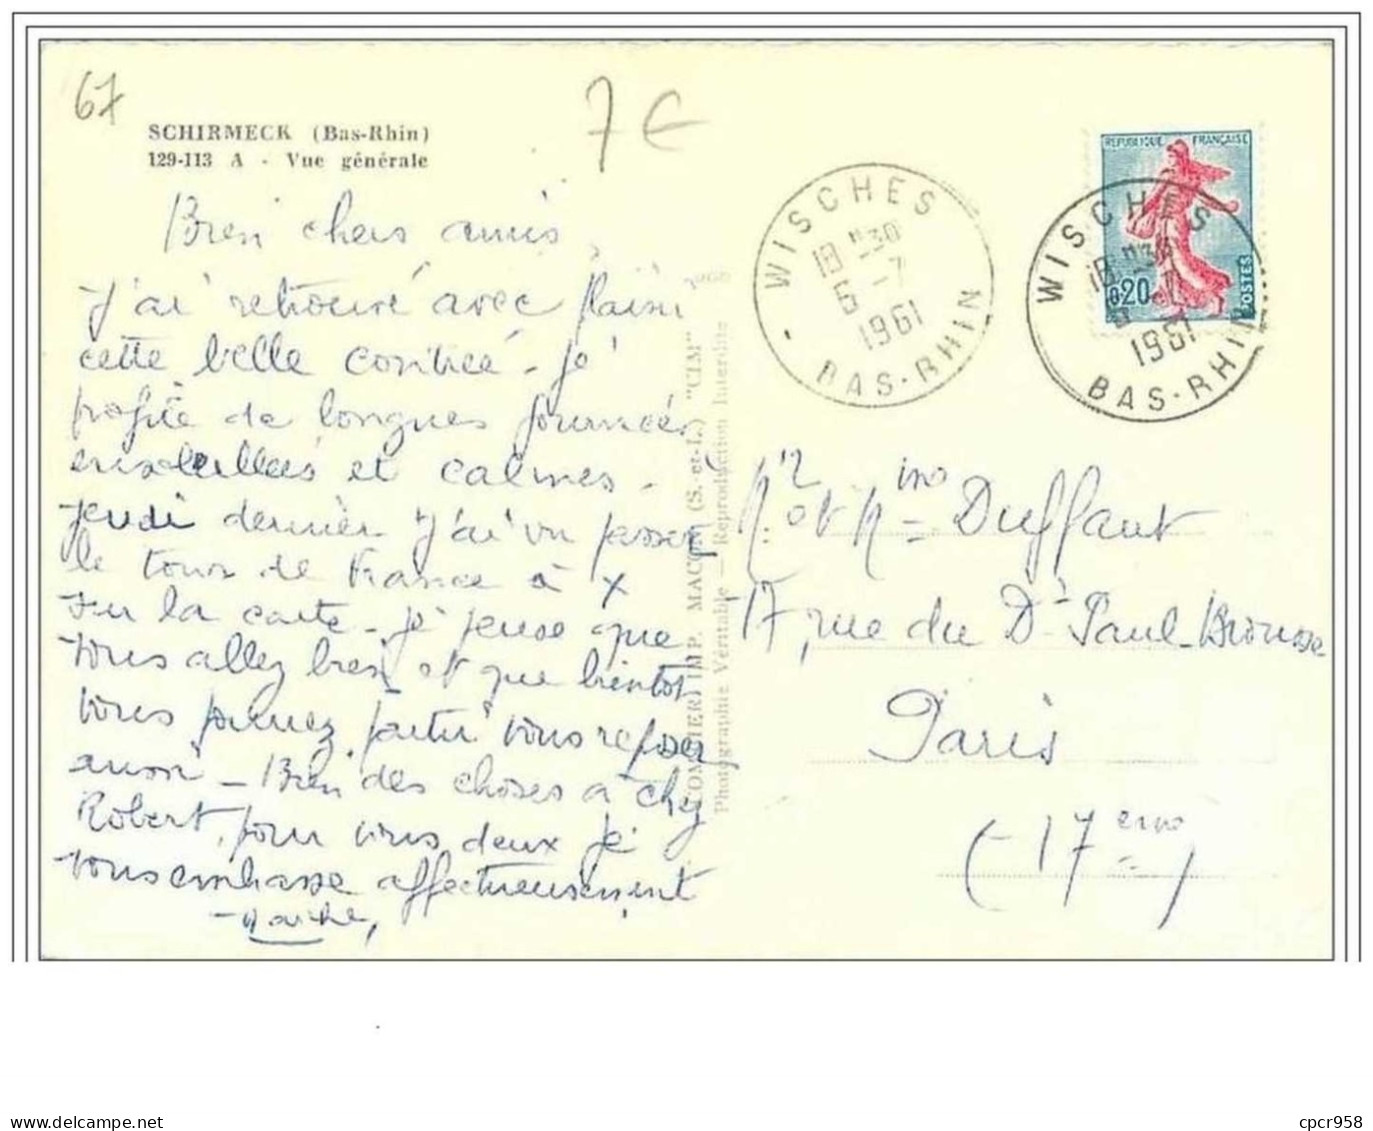 67
7 €
SCHIRMECK (Bas-Rhin)
129-113 A - Vue générale
Bien chers amis,
J'ai retrouvé avec plaisir
cette belle contrée - je
profite de longues journées
ensoleillées et calmes.
Jeudi dernier j'ai vu passer
le tour de France à X
sur la carte - je pense que
vous allez bien et que bientôt
vous pourrez partir vous reposer
aussi - Bien des choses à chez
Robert, pour vous deux je
vous embrasse affectueusement
COMBIER IMP. MACON (S.-et-L.) "CIM"
Photographie Véritable — Reproduction Interdite
WISCHES
18 H30
6 -7
1961
BAS-RHIN
REPUBLIQUE FRANÇAISE
0,20
POSTES
WISCHES
18 H30
1961
BAS-RHIN
Mr et Mme Duffaut
17, rue du Dr Paul-Brousse
Paris
(17eme)
cpcr958